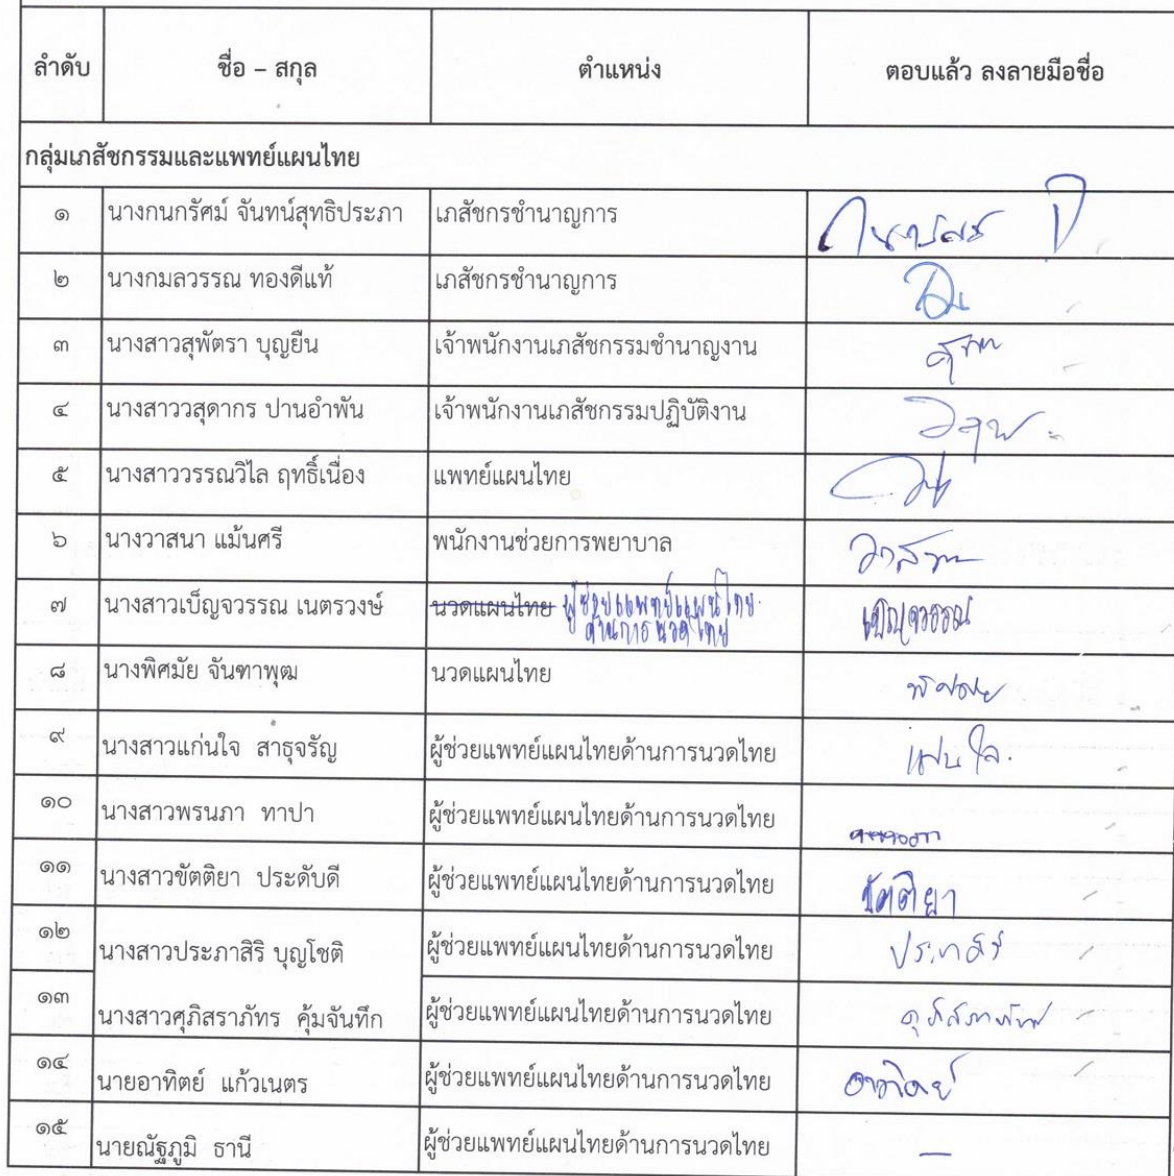 ลำดับ ชื่อ – สกุล ตำแหน่ง ตอบแล้ว ลงลายมือชื่อ
กลุ่มเภสัชกรรมและแพทย์แผนไทย
๑ นางกนกรัศม์ จันทน์สุทธิประภา เภสัชกรชำนาญการ
๒ นางกมลวรรณ ทองดีแท้ เภสัชกรชำนาญการ
๓ นางสาวสุพัตรา บุญยืน เจ้าพนักงานเภสัชกรรมชำนาญงาน
๔ นางสาววสุดากร ปานอำพัน เจ้าพนักงานเภสัชกรรมปฏิบัติงาน
๕ นางสาววรรณวิไล ฤทธิ์เนื่อง แพทย์แผนไทย
๖ นางวาสนา แม้นศรี พนักงานช่วยการพยาบาล วาสนา
๗ นางสาวเบ็ญจวรรณ เนตรวงษ์ นวดแผนไทย ผู้ช่วยแพทย์แผนไทย เบ็ญจวรรณ
ด้านการนวดไทย
๘ นางพิศมัย จันฑาพุฒ นวดแผนไทย พิศมัย
๙ นางสาวแก่นใจ สาธุจรัญ ผู้ช่วยแพทย์แผนไทยด้านการนวดไทย แก่นใจ
๑๐ นางสาวพรนภา ทาปา ผู้ช่วยแพทย์แผนไทยด้านการนวดไทย
๑๑ นางสาวขัตติยา ประดับดี ผู้ช่วยแพทย์แผนไทยด้านการนวดไทย ขัตติยา
๑๒ นางสาวประภาสิริ บุญโชติ ผู้ช่วยแพทย์แผนไทยด้านการนวดไทย ประภาสิริ
๑๓ นางสาวศุภิสราภัทร คุ้มจันทึก ผู้ช่วยแพทย์แผนไทยด้านการนวดไทย ศุภิสราภัทร
๑๔ นายอาทิตย์ แก้วเนตร ผู้ช่วยแพทย์แผนไทยด้านการนวดไทย อาทิตย์
๑๕ นายณัฐภูมิ ธานี ผู้ช่วยแพทย์แผนไทยด้านการนวดไทย –